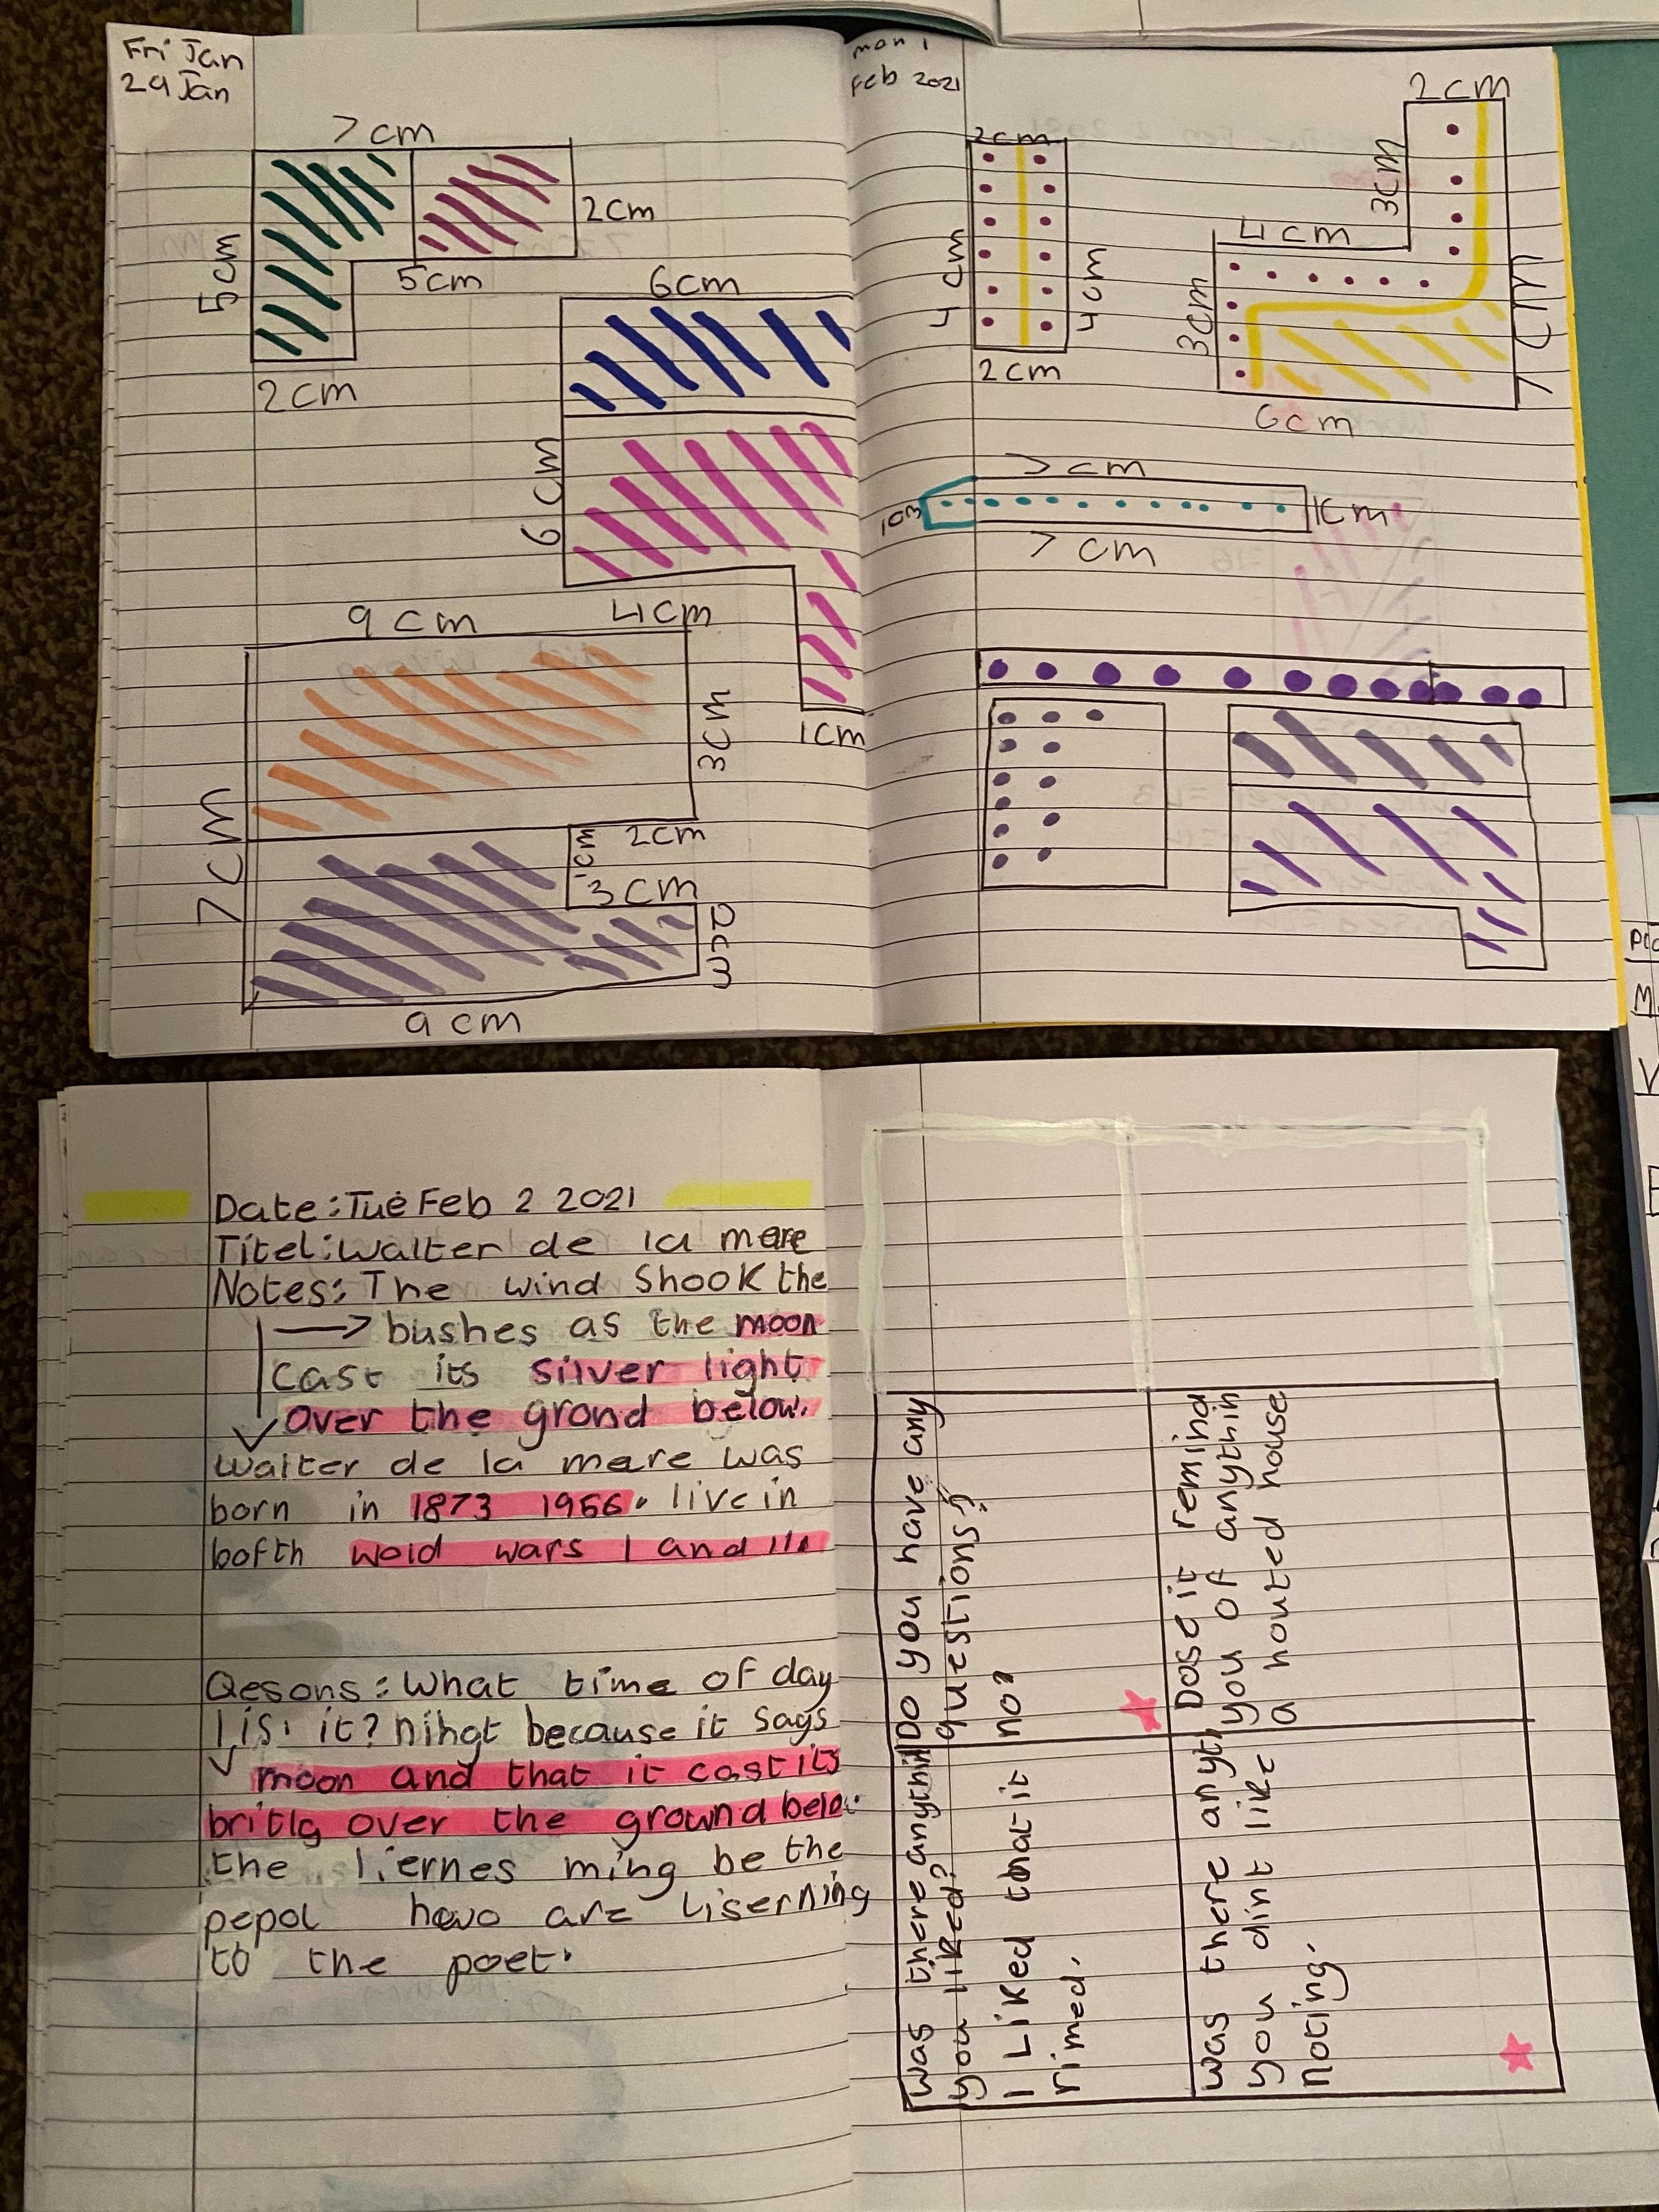 Fri Jan
29 Jan
7cm
2cm
5cm
5cm
2cm
6cm
6cm
1cm
9cm
4cm
3cm
7cm
1cm
2cm
3cm
2cm
9cm
mon 1
Feb 2021
2cm
4cm
4cm
2cm
2cm
3cm
4cm
3cm
7cm
6cm
7cm
1cm
1cm
7cm
Date: Tue Feb 2 2021
Titel: walter de la mare
Notes: The wind Shook the
bushes as the moon
Cast its silver light
over the grond below.
Walter de la mare was
born in 1873 1956. live in
bofth wold wars I and II.
Qesons: What time of day
is it? nihgt because it says
moon and that it cast its
britlg over the ground belo
the liernes ming be the
pepol howo are liserning
to the poet.
Do you have any
questions?
no?
Dose it remind
you of anythin
a houted house
was there anythin
you liked?
I Liked that it
rimed.
was there anyth
you dint like
noting.